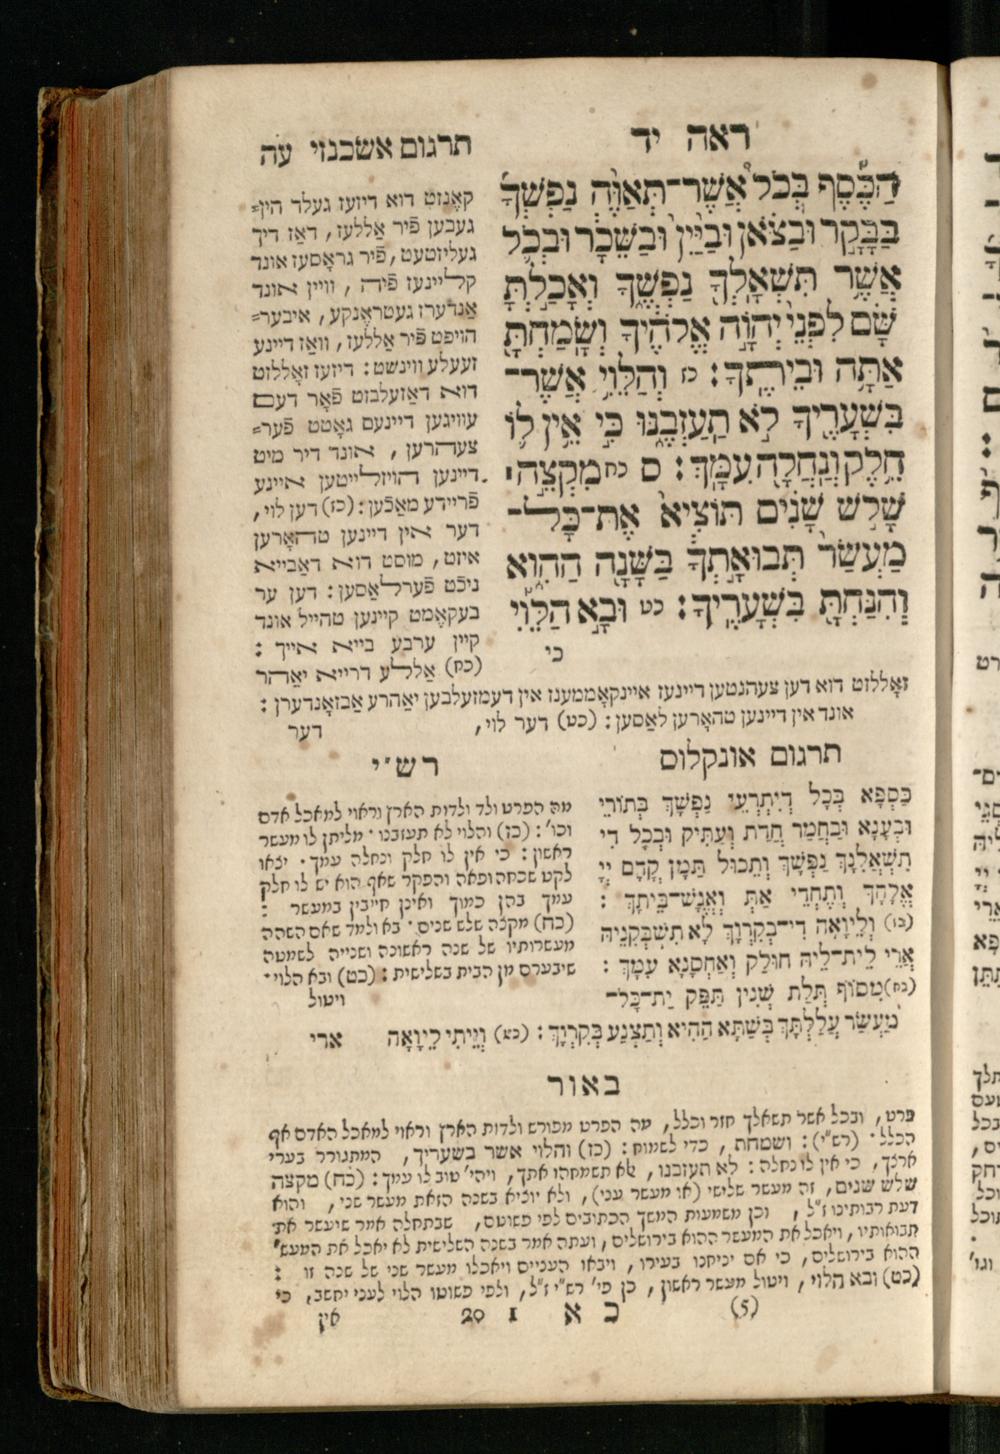 ראה יד
תרגום אשכנזי עה
הַכֶּסֶף בְּכֹל אֲשֶׁר־תְּאַוֶּה נַפְשְׁךָ
בַּבָּקָר וּבַצֹּאן וּבַיַּיִן וּבַשֵּׁכָר וּבְכֹל
אֲשֶׁר תִּשְׁאָלְךָ נַפְשֶׁךָ וְאָכַלְתָּ
שָּׁם לִפְנֵי יְהוָֹה אֱלֹהֶיךָ וְשָׂמַחְתָּ
אַתָּה וּבֵיתֶךָ : כז וְהַלֵּוִי אֲשֶׁר־
בִּשְׁעָרֶיךָ לֹא תַעַזְבֶנּוּ כִּי אֵין לוֹ
חֵלֶק וְנַחֲלָה עִמָּךְ : ס כח מִקְצֵה ׀
שָׁלֹשׁ שָׁנִים תּוֹצִיא אֶת־כָּל־
מַעְשַׂר תְּבוּאָתְךָ בַּשָּׁנָה הַהִוא
וְהִנַּחְתָּ בִּשְׁעָרֶיךָ : כט וּבָא הַלֵּוִי
כי
קאָנזט דוא דיזעז געלד הין=
געבען פֿיר אַללעז , דאַז דיך
געליזטעט , פֿיר גראָסעז אונד
קליינעז פֿיה , וויין אונד
אַנדערז געטראַנקע , איבער=
הויפט פֿיר אַללעז , וואַז דיינע
זעעלע ווינשט : דיזעז זאָללזט
דוא דאַזעלבזט פֿאָר דעם
עוויגען דיינעם גאָטט פֿער=
צעהרען , אונד דיר מיט
דיינען הויזלייטען איינע
פֿריידע מאַכֿען : (כז) דען לוי ,
דער אין דיינען טהאָרען
איזט , מוסט דוא דאַבייא
ניכֿט פֿערלאַסען : דען ער
בעקאָמט קיינען טהייל אונד
קיין ערבע בייא אייך :
(כח) אַללע דרייא יאַהר
זאָללזט דוא דען צעהנטען דיינעז איינקאָממענז אין דעמזעלבען יאַהרע אַבזאָנדערן :
אונד אין דיינען טהאָרען לאַסען : (כט) דער לוי ,
דער
תרגום אונקלוס
כַּסְפָּא בְּכָל דְיִתְרְעֵי נַפְשָׁךְ בְּתוֹרֵי
וּבְעָנָא וּבַחֲמַר חֲדַת וְעַתִּיק וּבְכָל דִי
תִשְׁאֲלִנָּךְ נַפְשָׁךְ וְתֵכוּל תַּמָּן קֳדָם יְיָ
אֱלָהָךְ וְתֶחְדֵי אַתְּ וֶאֱנָשׁ־בֵּיתָךְ :
(כז) וְלֵיוָאָה דִי־בְקִרְוָךְ לָא תִשְׁבְּקִנֵּיהּ
אֲרֵי לֵית־לֵיהּ חוּלַק וְאַחְסָנָא עִמָּךְ :
(כח) מִסּוֹף תְּלַת שְׁנִין תַּפֵּק יַת־כָּל־
מַעְשַׂר עֲלַלְתָּךְ בְּשַׁתָּא הַהִיא וְתַצְנַע בְּקִרְוָךְ : (כט) וְיֵיתִי לֵיוָאָה ארי
רש״י
מה הפרט ולד ולדות הארץ וראוי למאכל אדם
וכו׳ : (כז) והלוי לא תעזבנו . מליתן לו מעשר
ראשון : כי אין לו חלק ונחלה עמך . יצאו
לקט שכחה ופאה והפקר שאף הוא יש לו חלק
עמך בהן כמוך ואינן חייבין במעשר :
(כח) מקצה שלש שנים . בא ולמד שאם השהה
מעשרותיו של שנה ראשונה ושנייה לשמטה
שיבערם מן הבית בשלישית : (כט) ובא הלוי .
ויטול
באור
פרט , ובכל אשר תשאלך חזר וכלל , מה הפרט מפורש ולדות הארץ וראוי למאכל האדם אף
הכלל . (רש״י) : ושמחת , כדי לשמוח : (כז) והלוי אשר בשעריך , המתגורר בערי
ארצך , כי אין לו נחלה : לא תעזבנו , שלא תשמחהו אתך , ויהי׳ טוב לו עמך : (כח) מקצה
שלש שנים , זה מעשר שלישי (או מעשר עני) , ולא יוציא בשנה הזאת מעשר שני , והוא
דעת רבותינו ז״ל , וכן משמעות המשך הכתובים לפי פשוטם , שבתחלה אמר שיעשר את
תבואותיו , ויאכל את המעשר ההוא בירושלים , ועתה אמר בשנה השלישית לא יאכל את המעש׳
ההוא בירושלים , כי אם יניחנו בעירו , ויבאו העניים ויאכלו מעשר שני של שנה זו :
(כט) ובא הלוי , ויטול מעשר ראשון , כן פי׳ רש״י ז״ל , ולפי פשוטו הלוי לעני יחשב , כי
(5) כ א 1 20 אין